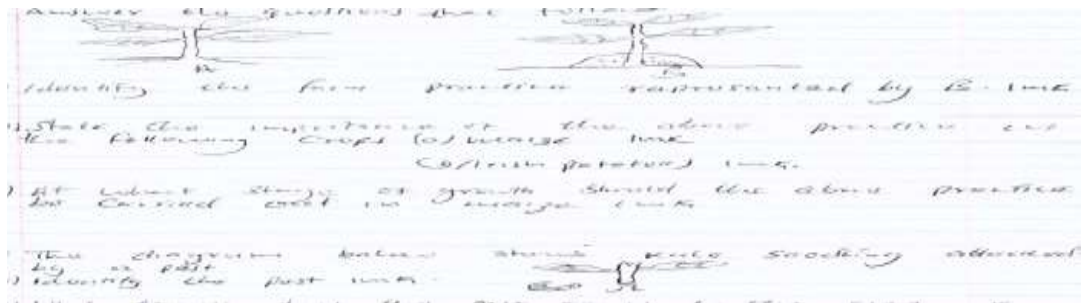 Answer the questions that follow
A B
Identify the farm practice represented by B. 1mk
State the importance of the above practice in
the following crops (a) maize 1mk
(b) Irish potatoes 1mk.
At what stage of growth should the above practice
be carried out in maize 1mk
The diagram below shows kale seedling attacked
by a pest
Identify the pest 1mk.